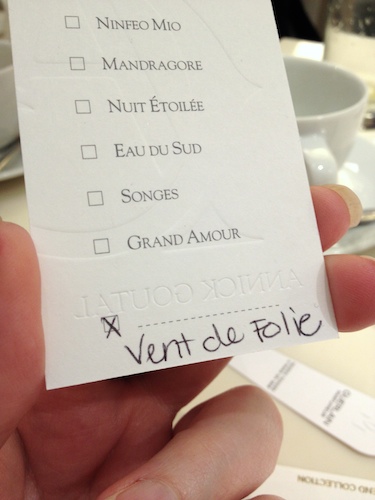 NINFEO MIO
MANDRAGORE
NUIT ÉTOILÉE
EAU DU SUD
SONGES
GRAND AMOUR
ANNICK GOUTAL
X
Vent de Folie
GUERLAIN
ND COLLECTION